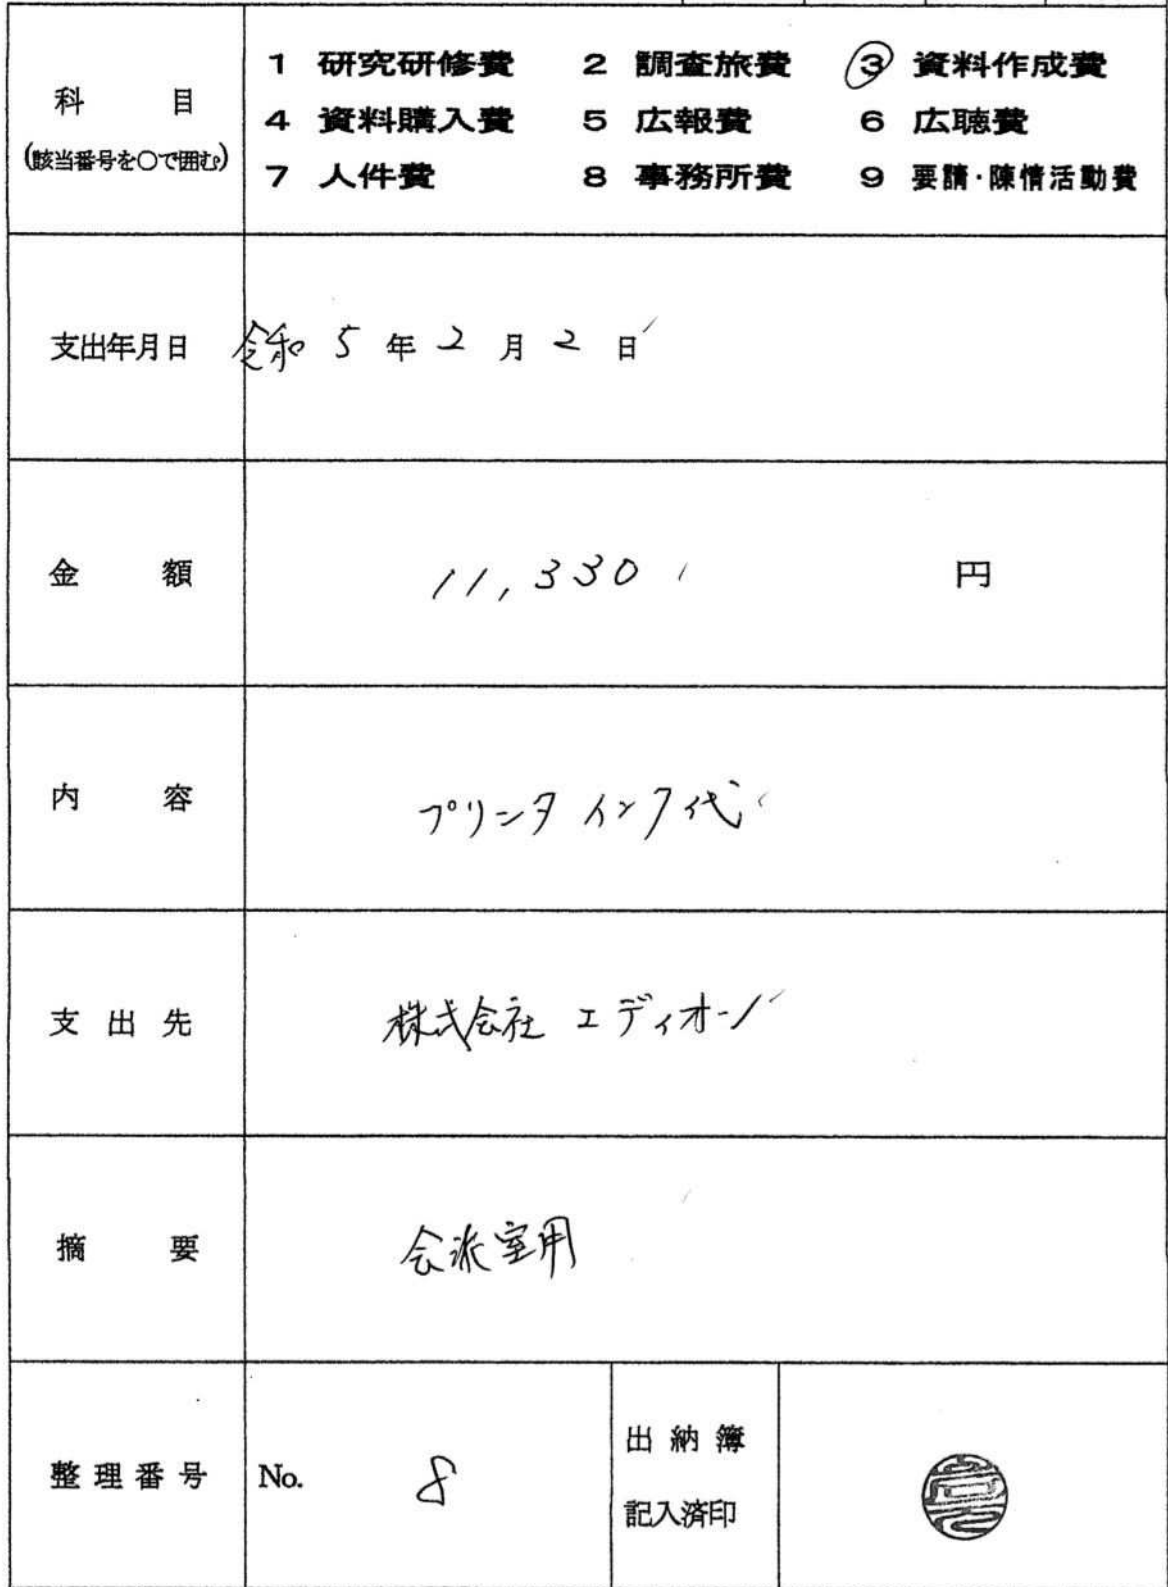 科 目
(該当番号を○で囲む)
1 研究研修費 2 調査旅費 ③ 資料作成費
4 資料購入費 5 広報費 6 広聴費
7 人件費 8 事務所費 9 要請・陳情活動費
支出年月日 令和 5 年 2 月 2 日
金 額 11,330 円
内 容 プリンタインク代
支 出 先 株式会社 エディオン
摘 要 会派室用
整 理 番 号 No. 8
出 納 簿
記入済印